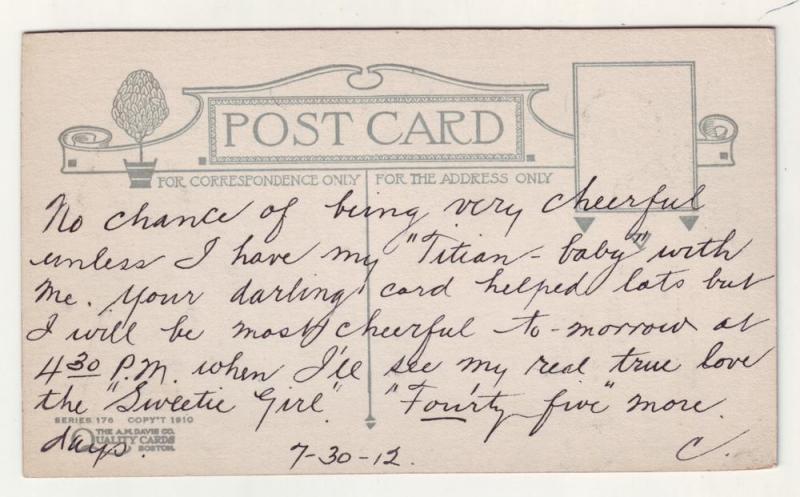 POST CARD
FOR CORRESPONDENCE ONLY
FOR THE ADDRESS ONLY
No chance of being very cheerful
unless I have my "Titian-baby" with
me. Your darling card helped lots but
I will be most cheerful to-morrow at
4 30 P.M. when I'll see my real true love
the "Sweetie Girl". "Fourty five" more
days. 7-30-12. C.
SERIES 176 COPY'T 1910
THE A.M. DAVIS CO.
QUALITY CARDS
BOSTON.